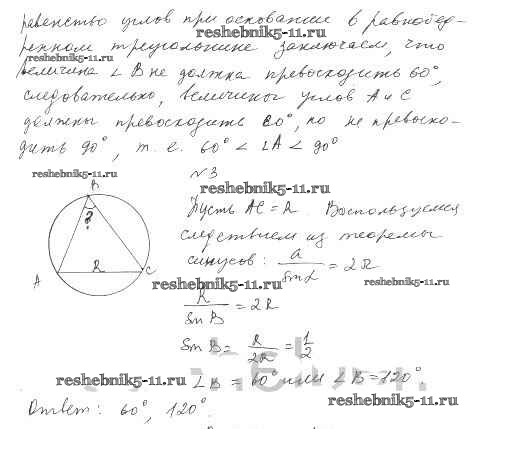 равенство углов при основании в равнобед-
reshebnik5-11.ru
ренном треугольнике заключаем, что
reshebnik5-11.ru
величина ∠B не должна превосходить 60°,
следовательно, величины углов A и C
должны превосходить 60°, но не превосхо-
дить 90°, т.е. 60° < ∠A < 90°
reshebnik5-11.ru
№3
reshebnik5-11.ru
B
?
A R C
Пусть AC = R. Воспользуемся
следствием из теоремы
синусов: a / sin α = 2R
reshebnik5-11.ru
reshebnik5-11.ru
R / sin B = 2R
sin B = R / 2R = 1/2
reshebnik5-11.ru
∠B = 60° или ∠B = 120°.
reshebnik5-11.ru
Ответ: 60°, 120°.